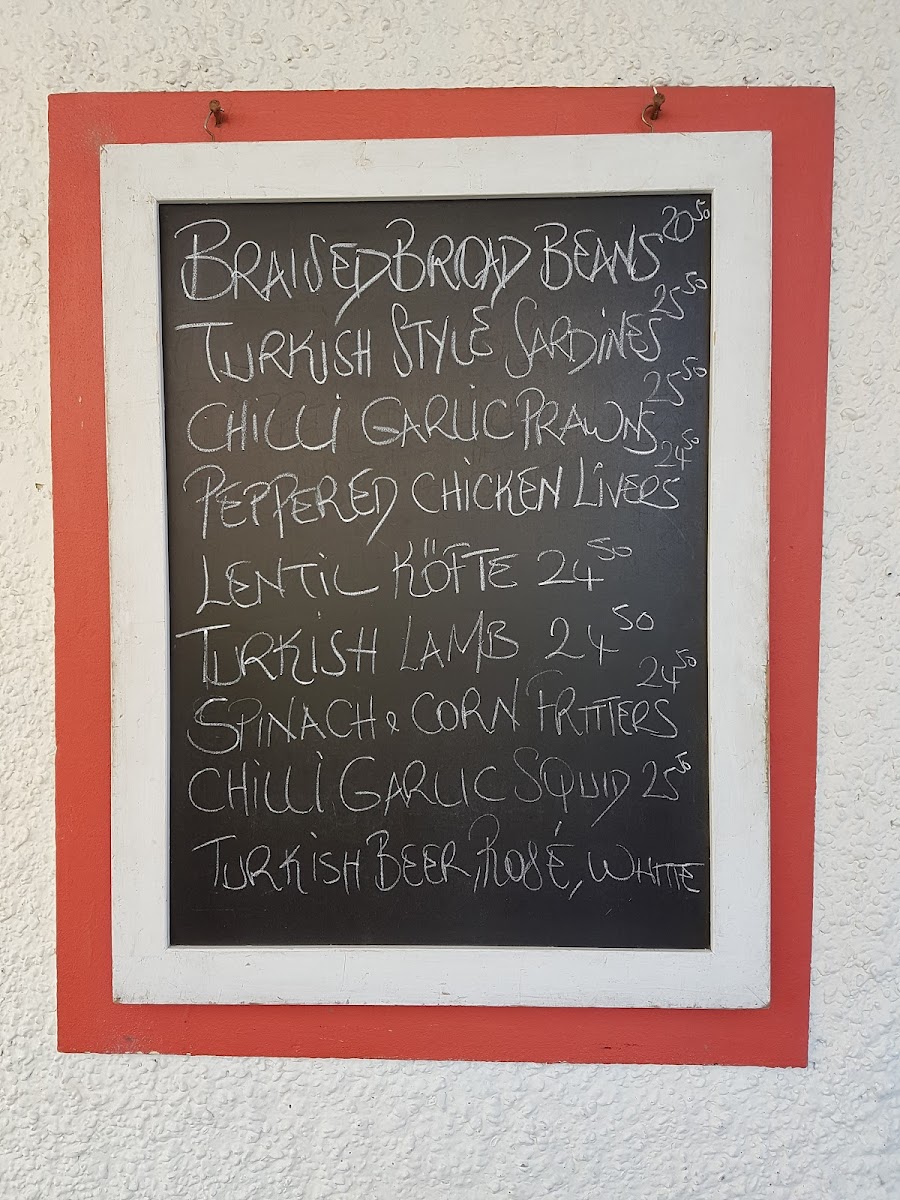 BRAISED BROAD BEANS 20 50
TURKISH STYLE SARDINES 25 50
CHILLI GARLIC PRAWNS 25 50
PEPPERED CHICKEN LIVERS 24 50
LENTIL KÖFTE 24 50
TURKISH LAMB 24 50
SPINACH & CORN FRITTERS 24 50
CHILLI GARLIC SQUID 25 50
TURKISH BEER, ROSÉ, WHITE